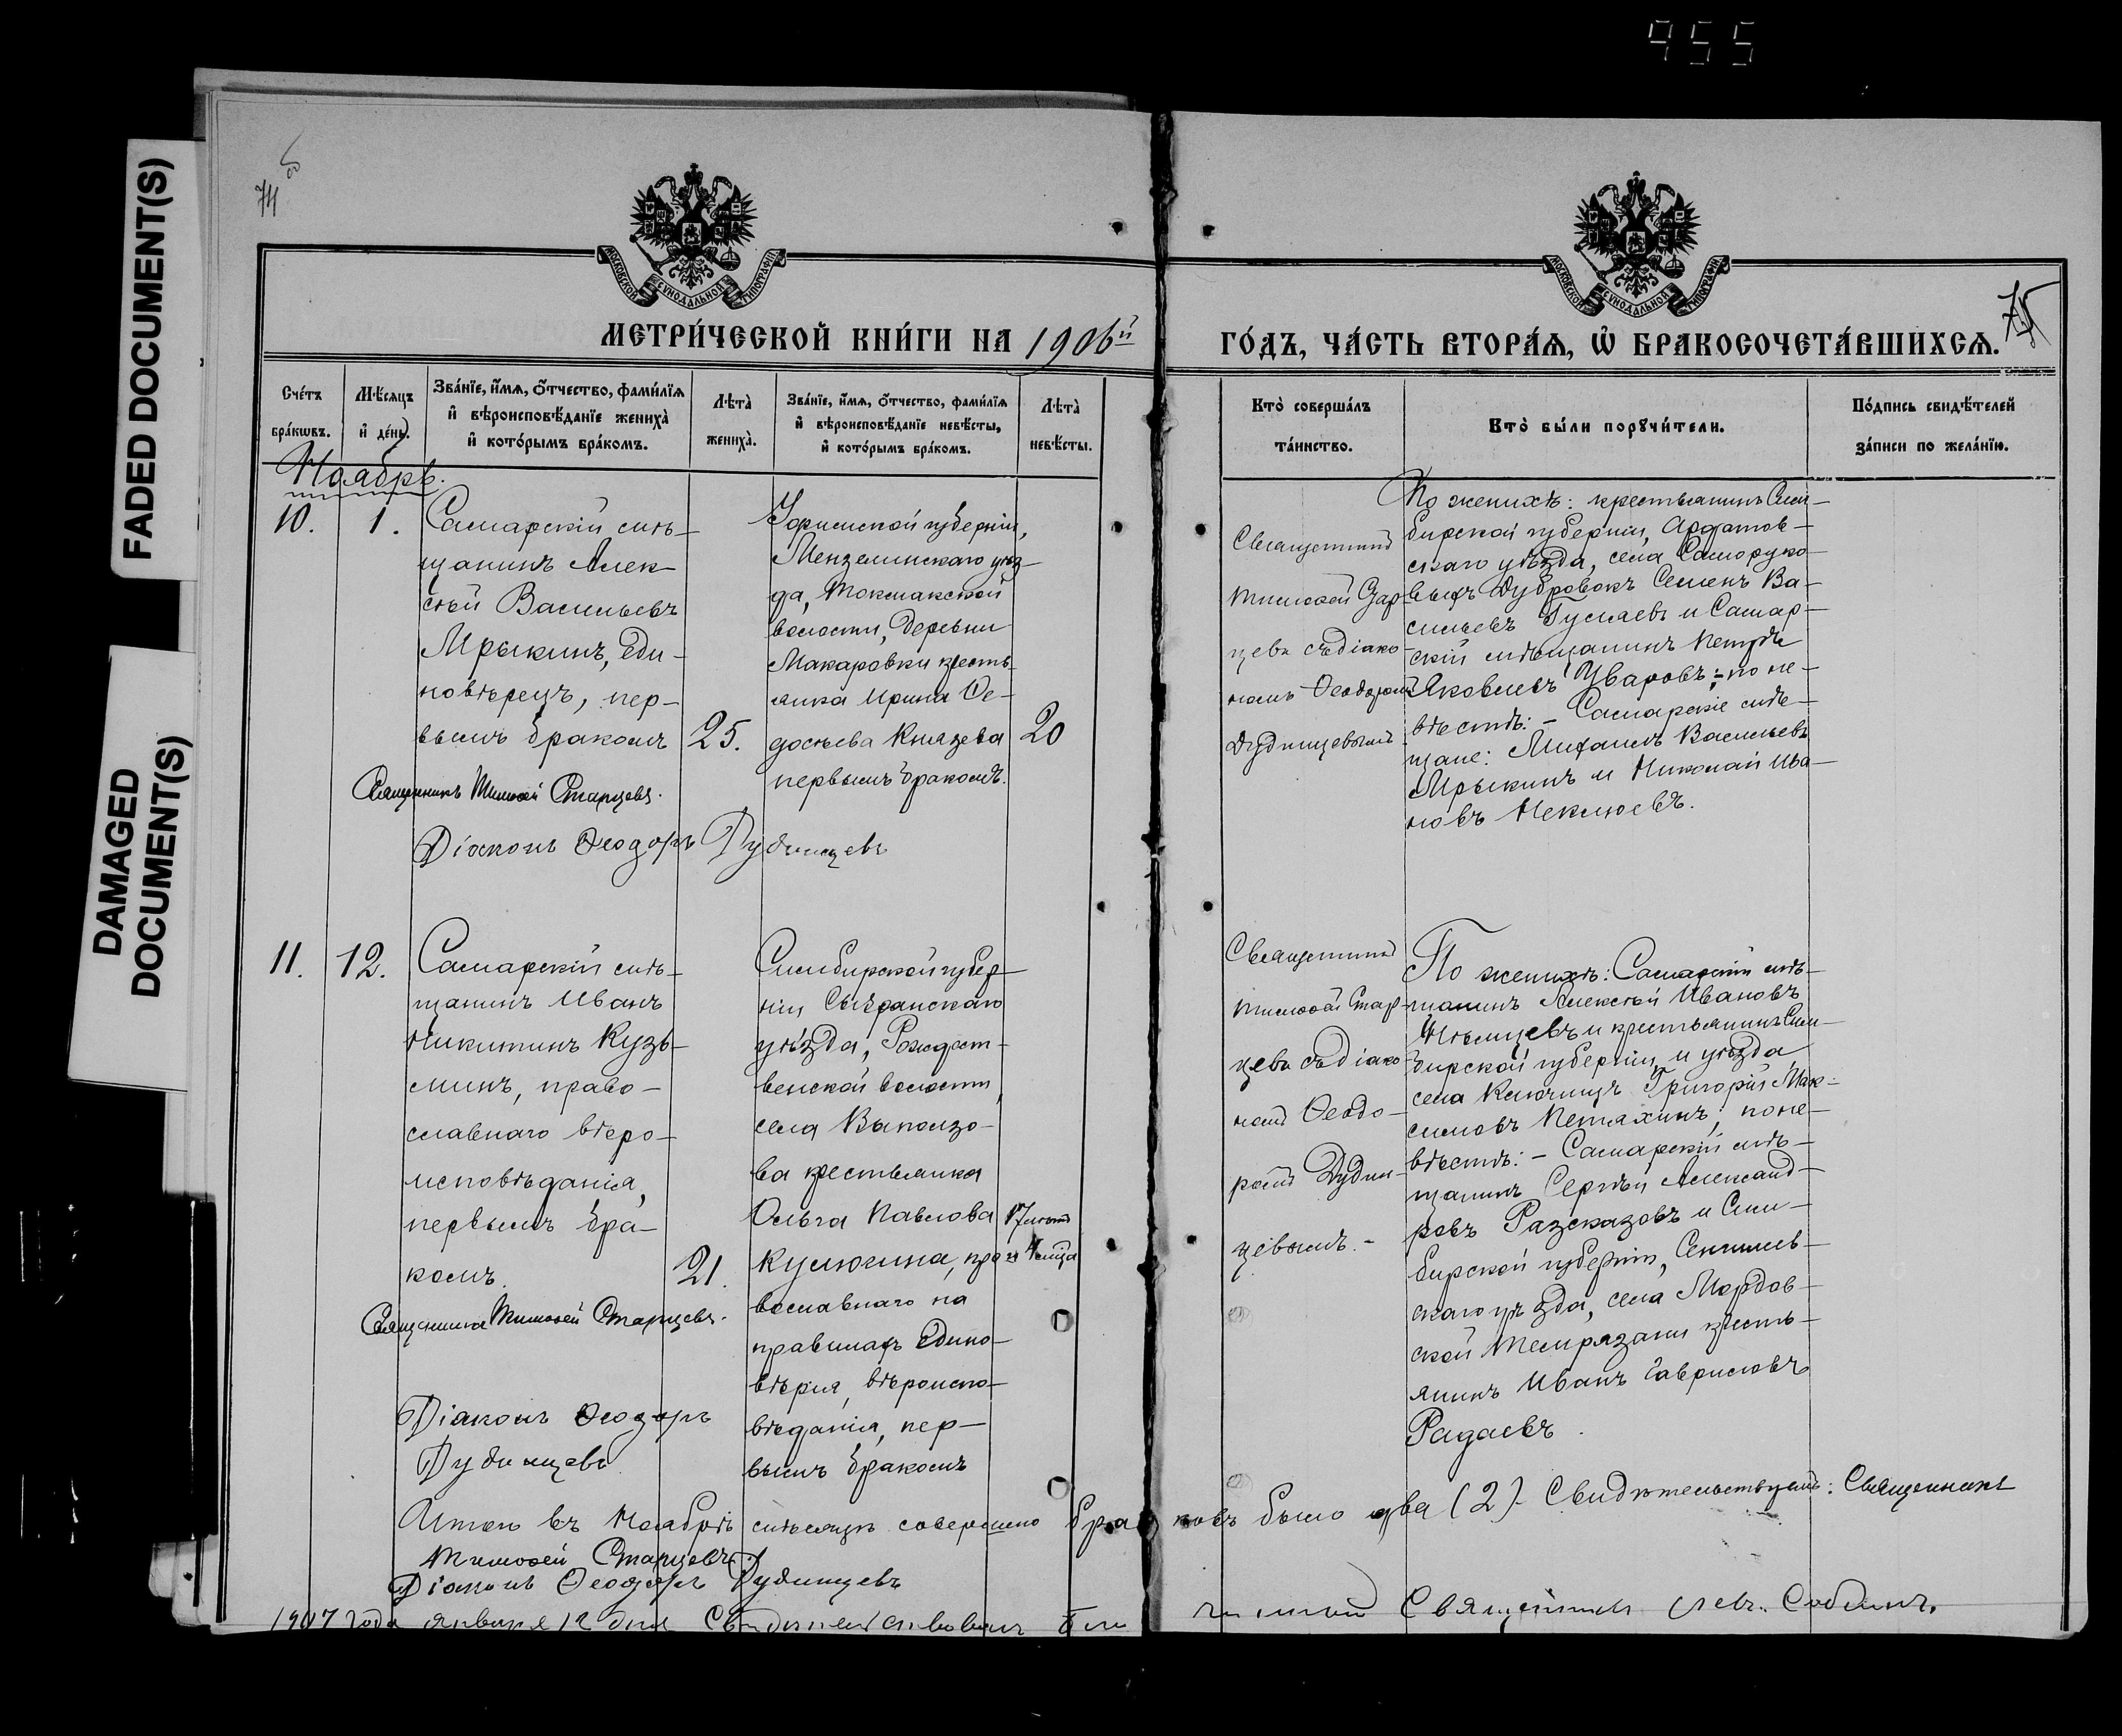 955
FADED DOCUMENT(S)
DAMAGED
DOCUMENT(S)
74 об
75
МОСКОВСКОЙ СѴНОДАЛЬНОЙ ТИПОГРАФІИ
МОСКОВСКОЙ СѴНОДАЛЬНОЙ ТИПОГРАФІИ
МЕТРИ́ЧЕСКОЙ КНИ́ГИ НА 1906й
ГО́ДЪ, ЧА́СТЬ ВТОРА́Ѧ, Ѡ҆ БРАКОСОЧЕТА́ВШИХСѦ.
Сче́тъ
бра́кѡвъ.
Мѣ́сѧцъ
и҆ де́нь.
Зва́нїе, и҆́мѧ, ѻ҆́тчество, фами́лїѧ
и҆ вѣроисповѣ́данїе жениха̀
и҆ кото́рымъ бра́комъ.
Лѣта̀
жениха̀.
Зва́нїе, и҆́мѧ, ѻ҆́тчество, фами́лїѧ
и҆ вѣроисповѣ́данїе невѣ́сты,
и҆ кото́рымъ бра́комъ.
Лѣта̀
невѣ́сты.
Кто̀ соверша́лъ
та́инство.
Кто̀ бы́ли порꙋчи́тели.
По́дпись свидѣ́телей
за́писи по жела́нїю.
Ноябрь.
10.
1.
Самарскій мѣ-
щанинъ Алек-
сѣй Васильевъ
Мрыкинъ, еди-
новѣрецъ, пер-
вымъ бракомъ
25.
Уфимской губерніи,
Мензелинскаго уѣз-
да, Токмакской
волости, деревни
Макаровки кресть-
янка Ирина Ѳе-
досѣева Князева
первымъ бракомъ.
20
Священникъ
Тимоѳей Стар-
цевъ съ діако-
номъ Ѳеодоромъ
Дудинцевымъ
По женихѣ: крестьянинъ Сим-
бирской губерніи, Ардатов-
скаго уѣзда, села
Дубровокъ Семенъ Ва-
сильевъ и Самар-
скій мѣщанинъ Петръ
Яковлевъ Уваровъ; - по не-
вѣстѣ: - Самарскіе мѣ-
щане: Михаилъ Васильевъ
Мрыкинъ и Николай Ива-
новъ Неклюевъ.
Священникъ Тимоѳей Старцевъ.
Діаконъ Ѳеодоръ Дудинцевъ
11.
12.
Самарскій мѣ-
щанинъ Иванъ
Никитинъ Кузь-
минъ, право-
славнаго вѣро-
исповѣданія,
первымъ бра-
комъ.
21.
Симбирской губер-
ніи Сызранскаго
уѣзда, Рождест-
венской волости,
села Выползо-
ва крестьянка
Ольга Павлова
Кулюгина, пра-
вославнаго на
правилахъ Едино-
вѣрія, вѣроиспо-
вѣданія, пер-
вымъ бракомъ
17 лѣтъ
и 4 м-ца
Священникъ
Тимоѳей Стар-
цевъ съ діако-
номъ Ѳеодо-
ромъ Дудин-
цевымъ. -
По женихѣ: Самарскій мѣ-
щанинъ Алексѣй Ивановъ
и крестьянинъ Сим-
бирской губерніи и уѣзда
села Ключищъ Григорій Мак-
симовъ Петяхинъ; по не-
вѣстѣ: - Самарскій мѣ-
щанинъ Сергѣй Александ-
ровъ Разсказовъ и Сим-
бирской губерніи, Сенгилеев-
скаго уѣзда, села Мордов-
ской Темрязани кресть-
янинъ Иванъ Гавриловъ
Радаевъ.
Священникъ Тимоѳей Старцевъ.
Діаконъ Ѳеодоръ
Дудинцевъ
Итого въ Ноябрѣ мѣсяцѣ совершено браковъ было два (2). Свидѣтельствуемъ: Священникъ
Тимоѳей Старцевъ.
Діаконъ Ѳеодоръ Дудинцевъ
1907 года января 12 дня Свидѣтельствовалъ Благочинный Священникъ